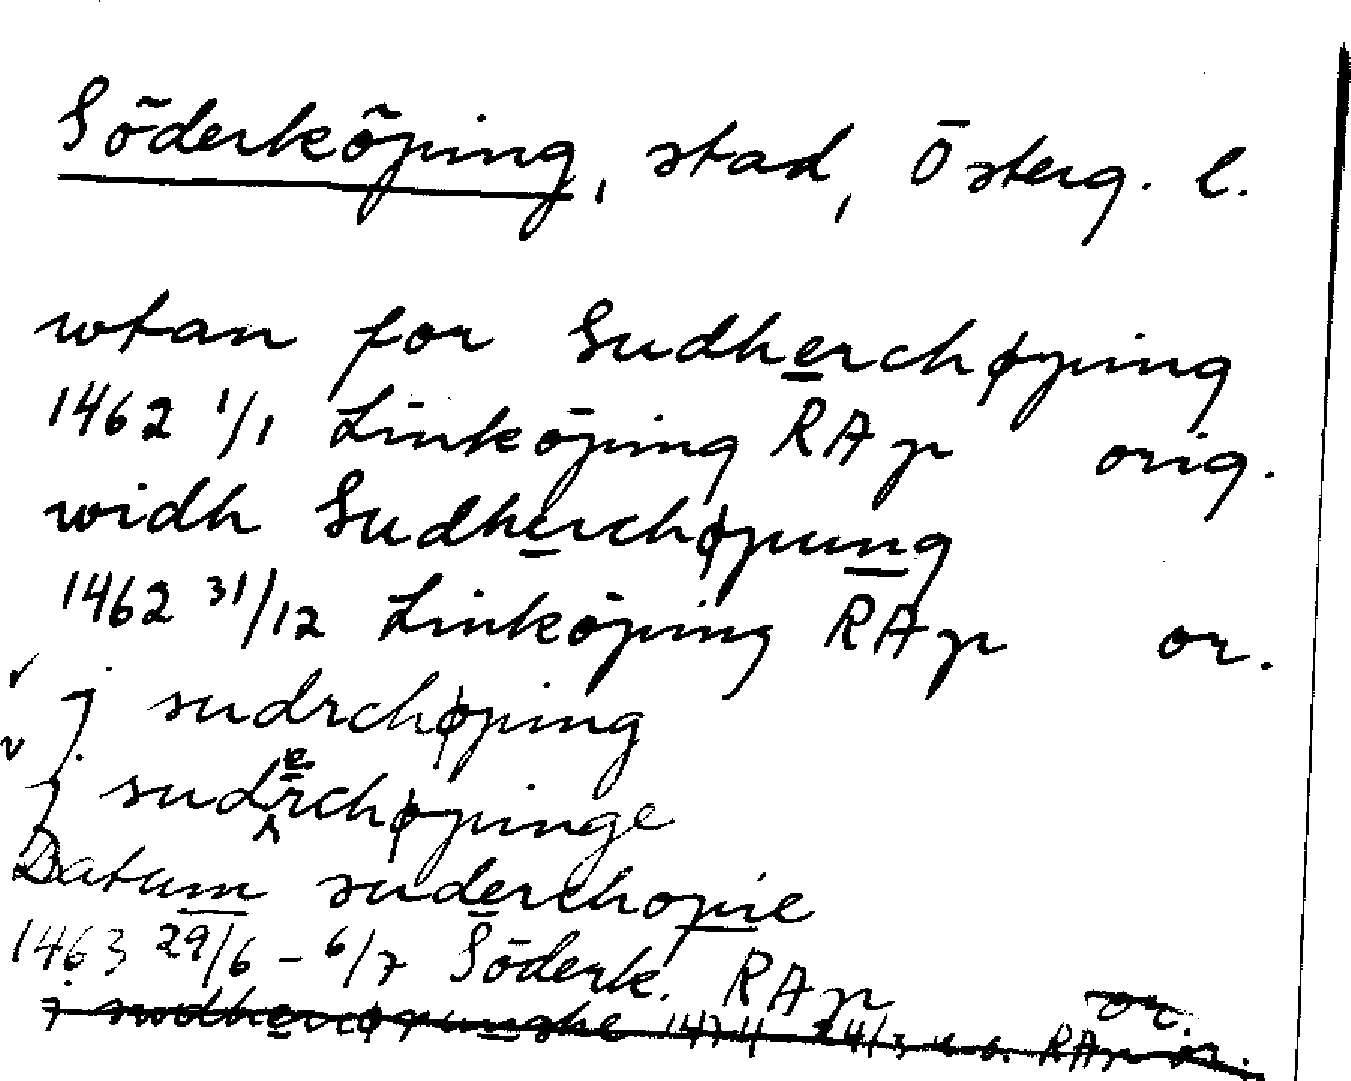 Söderköping, stad, Österg. l.
wtan for Sudherchøping
1462 1/1 Linköping RAp orig.
widh Sudherchøpung
1462 31/12 Linköping RAp or.
j sudrchøping
j suderchøpinge
Datum suderchopie
1463 29/6 - 6/7 Söderk. RAp or.